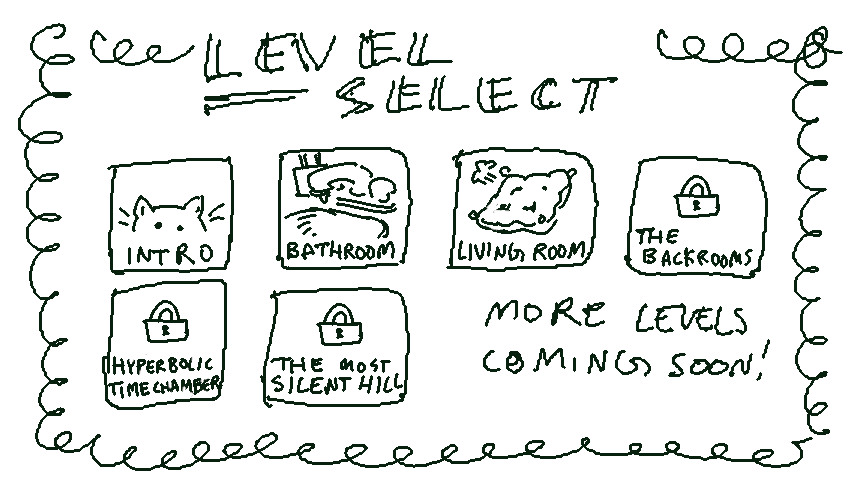 LEVEL
SELECT
INTRO
BATHROOM
LIVING ROOM
THE
BACKROOMS
HYPERBOLIC
TIME CHAMBER
THE MOST
SILENT HILL
MORE LEVELS
COMING SOON!